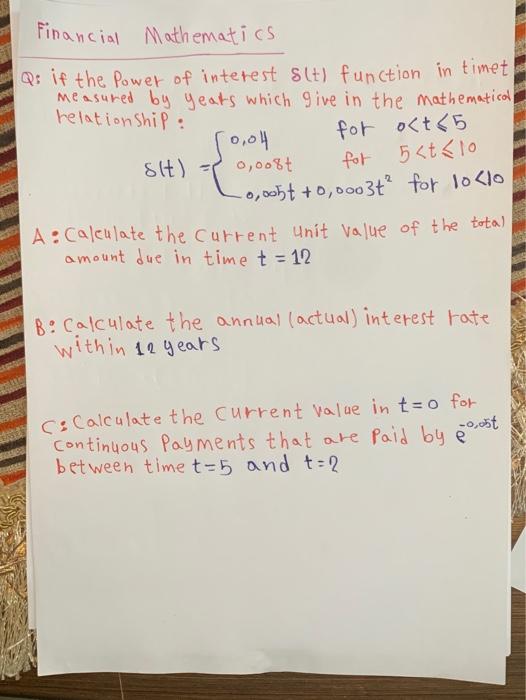 Financial Mathematics
Q: if the Power of interest δ(t) function in time t
measured by years which give in the mathematical
relationship:
0,04 for 0<t≤5
δ(t) = { 0,008t for 5<t≤10
0,005t + 0,0003t² for 10<10
A: Calculate the current unit value of the total
amount due in time t = 12
B: Calculate the annual (actual) interest rate
within 12 years
C: Calculate the current value in t=0 for
continuous Payments that are Paid by e^-0,05t
between time t=5 and t=2